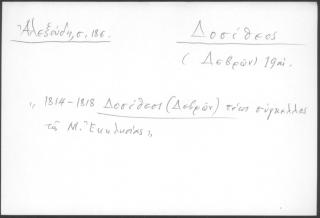 Ἀλεξούδη, σ. 186.
Δοσίθεος
( Δεβρῶν) 19αι.
„ 1814-1818 Δοσίθεος (Δεβρῶν) τέως σύγκελλος
τῆς Μ. Ἐκκλησίας „